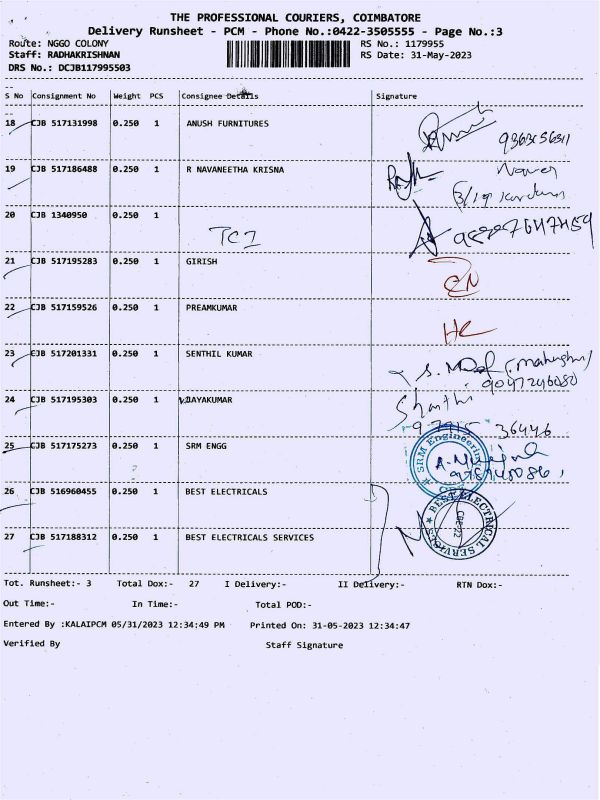 THE PROFESSIONAL COURIERS, COIMBATORE
Delivery Runsheet - PCM - Phone No.:0422-3505555 - Page No.:3
Route: NGGO COLONY RS No.: 1179955
Staff: RADHAKRISHNAN RS Date: 31-May-2023
DRS No.: DCJB117995503
S No Consignment No Weight PCS Consignee Details Signature
18 CJB 517131998 0.250 1 ANUSH FURNITURES
19 CJB 517186488 0.250 1 R NAVANEETHA KRISNA
20 CJB 1340950 0.250 1
TCI
21 CJB 517195283 0.250 1 GIRISH
22 CJB 517159526 0.250 1 PREAMKUMAR
23 CJB 517201331 0.250 1 SENTHIL KUMAR
9047246080
24 CJB 517195303 0.250 1 DAYAKUMAR
Shanthi
36446
25 CJB 517175273 0.250 1 SRM ENGG
SRM Engineering
26 CJB 516960455 0.250 1 BEST ELECTRICALS
BEST ELECTRICAL SERVICES
27 CJB 517188312 0.250 1 BEST ELECTRICALS SERVICES
Tot. Runsheet:- 3 Total Dox:- 27 I Delivery:- II Delivery:- RTN Dox:-
Out Time:- In Time:- Total POD:-
Entered By :KALAIPCM 05/31/2023 12:34:49 PM Printed On: 31-05-2023 12:34:47
Verified By Staff Signature